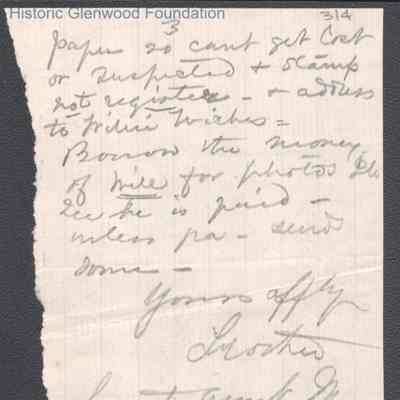 Historic Glenwood Foundation
314
3
paper so cant get Cost
or suspected & stamp
not register - & address
to Willie Wickes =
Borrow the money
of Will for photos Ill
see he is paid -
unless pa - send
some -
Yours affly